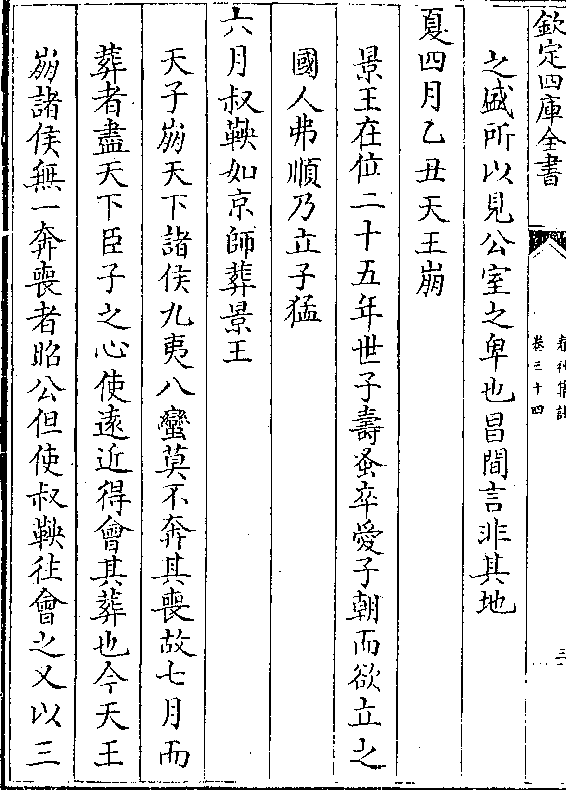 欽定四庫全書
春秋集註
卷三十四
三
之盛所以見公室之卑也昌間言非其地
夏四月乙丑天王崩
景王在位二十五年世子壽蚤卒愛子朝而欲立之
國人弗順乃立子猛
六月叔鞅如京師葬景王
天子崩天下諸侯九夷八蠻莫不奔其喪故七月而
葬者盡天下臣子之心使遠近得會其葬也今天王
崩諸侯無一奔喪者昭公但使叔鞅往會之又以三